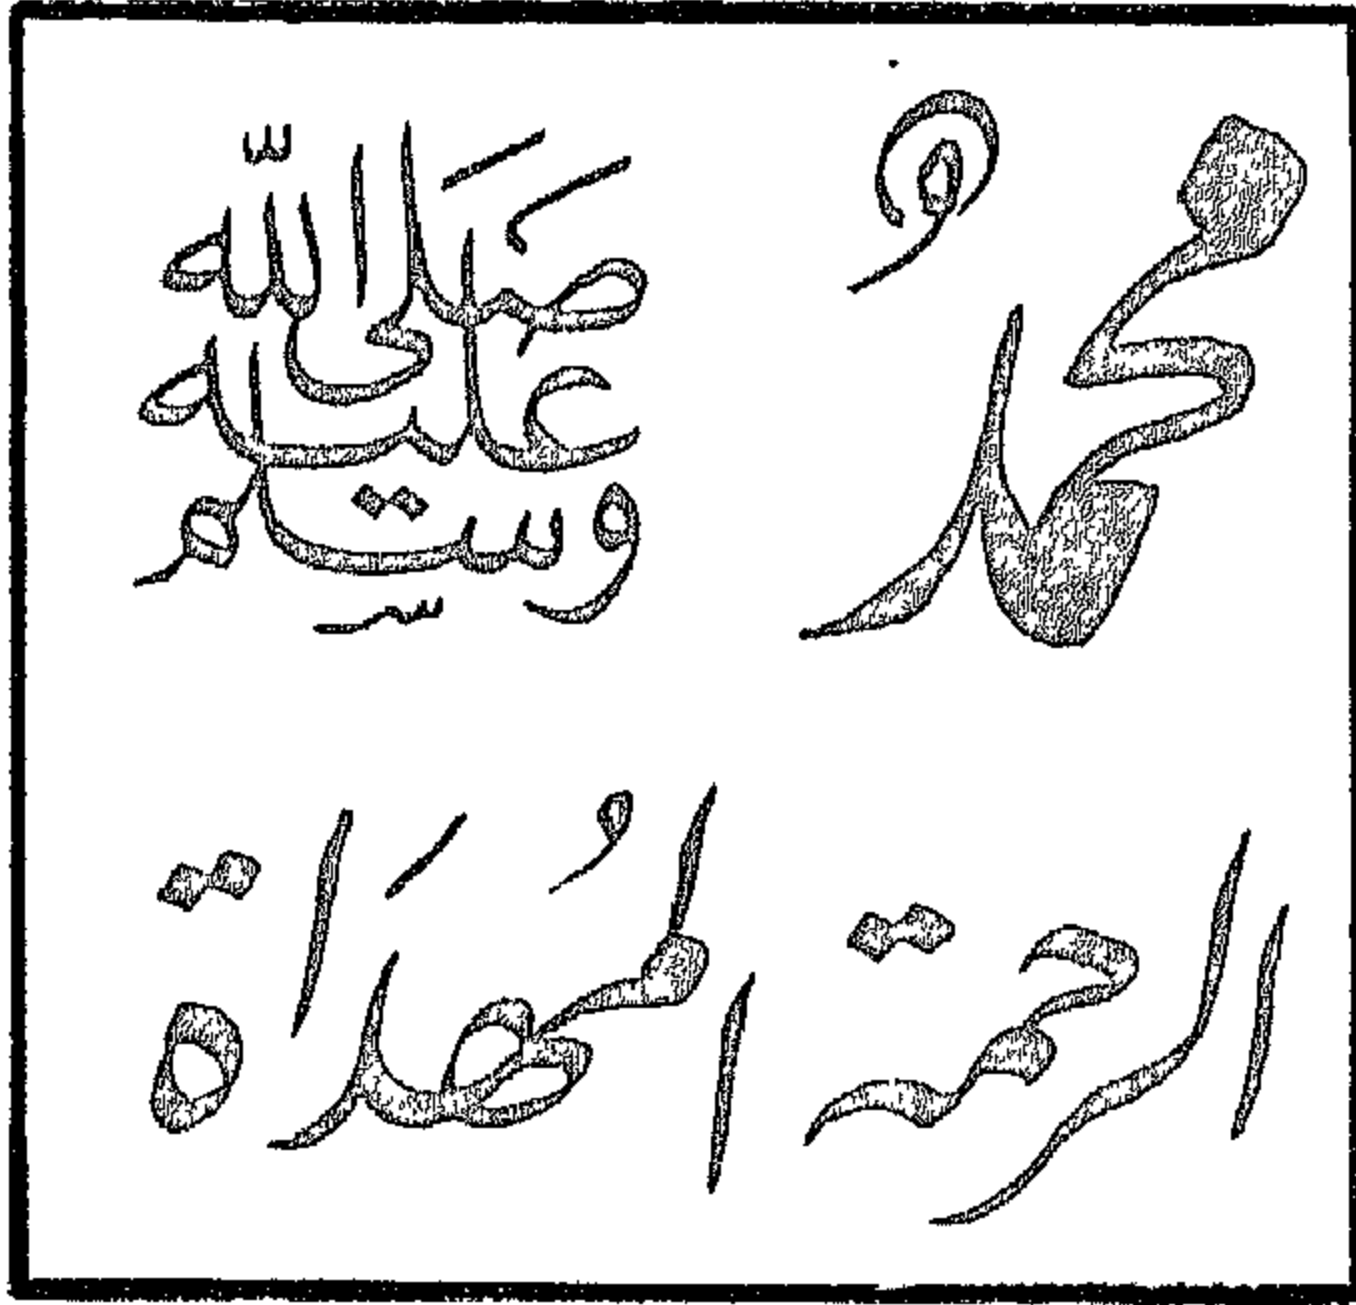 محمدٌ صَلَى اللّه عليه وسلم
الرحمة المُهدَاة